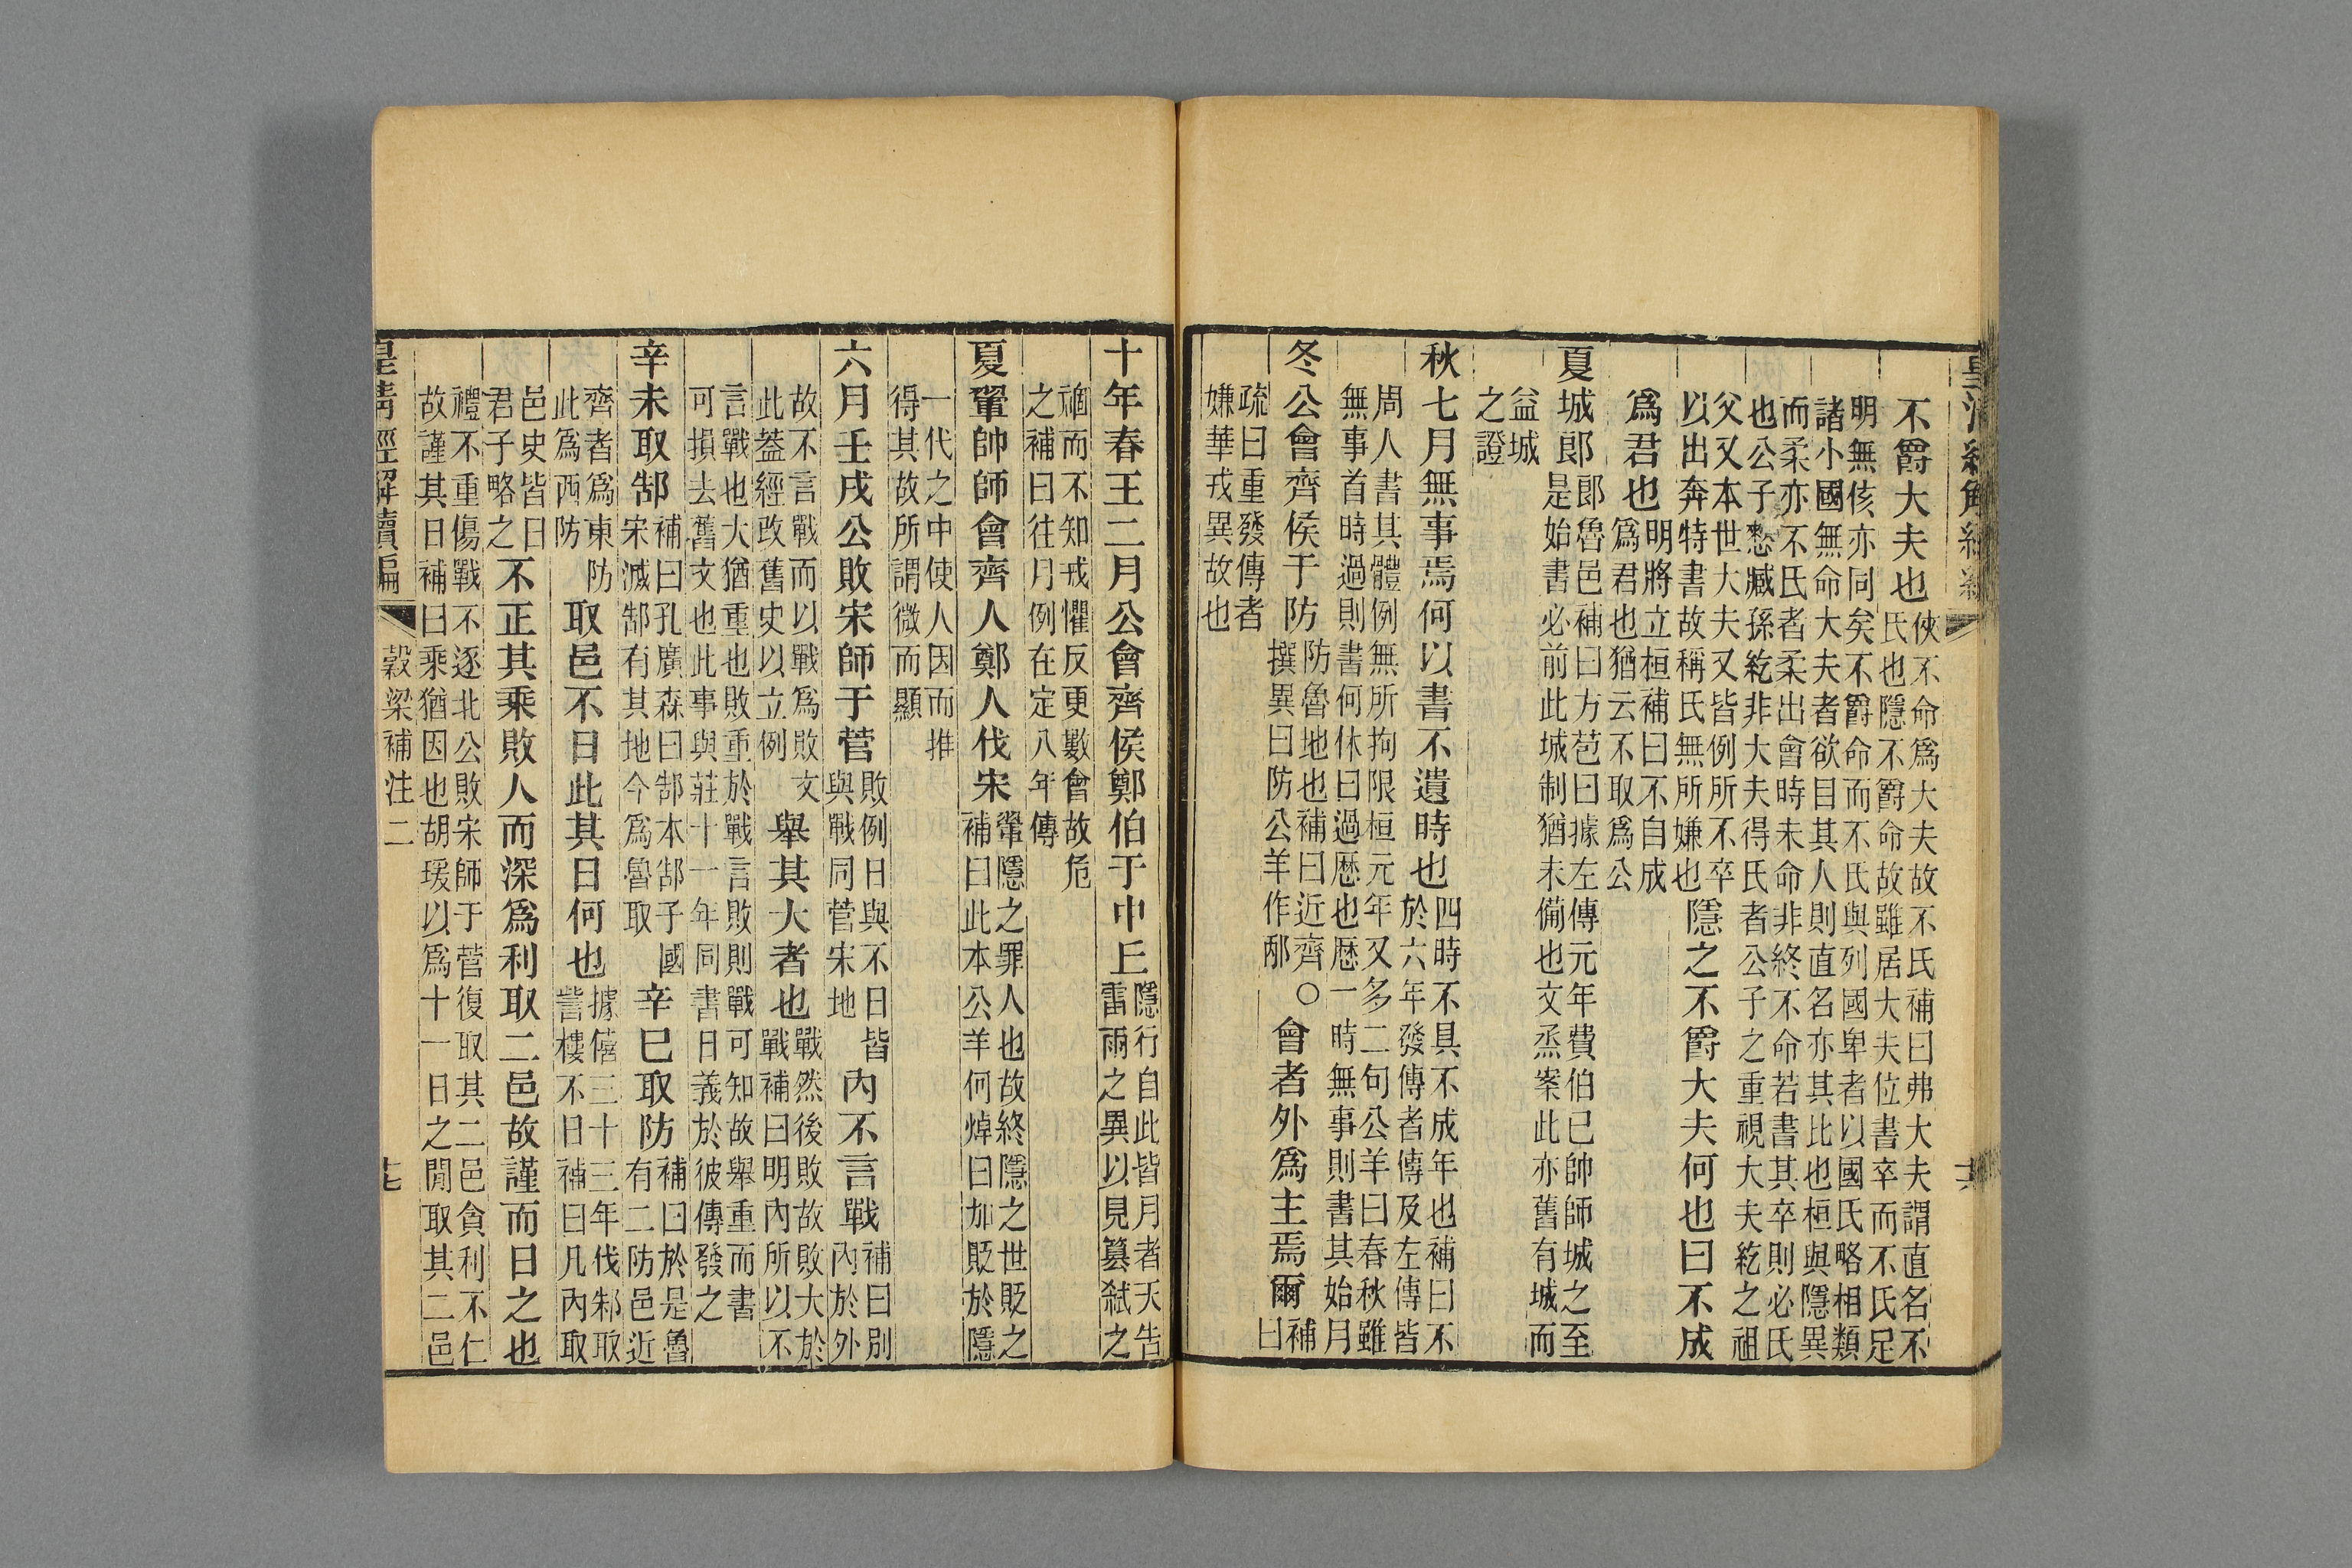 皇清經解續編
不爵大夫也俠不命爲大夫故不氏補曰弗大夫謂直名不
氏也隱不爵命故雖居大夫位書卒而不氏足
明無侅亦同矣不爵命而不氏與列國卑者以國氏略相類
諸小國無命大夫者欲目其人則直名亦其比也桓與隱異
而柔亦不氏者柔出會時未命非終不命若書其卒則必氏
也公子慭臧孫紇非大夫得氏者公子之重視大夫紇之祖
父又本世大夫又皆例所不卒
以出奔特書故稱氏無所嫌也隱之不爵大夫何也曰不成
爲君也明將立桓補曰不自成
爲君也猶云不取爲公
夏城郎郎魯邑補曰方苞曰據左傳元年費伯已帥師城之至
是始書必前此城制猶未備也文烝案此亦舊有城而
益城
之證
秋七月無事焉何以書不遺時也四時不具不成年也補曰不
於六年發傳者傳及左傳皆
周人書其體例無所拘限桓元年又多二句公羊曰春秋雖
無事首時過則書何休曰過歴也歴一時無事則書其始月
冬公會齊侯于防防魯地也補曰近齊○
撰異曰防公羊作邴會者外爲主焉爾補
曰
疏曰重發傳者
嫌華戎異故也
十年春王二月公會齊侯鄭伯于中丘隱行自此皆月者天告
雷雨之異以見簒弑之
禍而不知戒懼反更數會故危
之補曰往月例在定八年傳
夏翬帥師會齊人鄭人伐宋翬隱之罪人也故終隱之世貶之
補曰此本公羊何焯曰加貶於隱
一代之中使人因而推
得其故所謂微而顯
六月壬戌公敗宋師于菅敗例日與不日皆
與戰同菅宋地內不言戰補曰別
內於外
故不言戰而以戰爲敗文
此葢經改舊史以立例舉其大者也戰然後敗故敗大於
戰補曰明內所以不
言戰也大猶重也敗重於戰言敗則戰可知故舉重而書
可損去舊文也此事與莊十一年同書日義於彼傳發之
辛未取郜補曰孔廣森曰郜本郜子國
宋滅郜有其地今爲魯取辛巳取防補曰於是魯
有二防邑近
齊者爲東防
此爲西防取邑不日此其日何也據僖三十三年伐邾取
訾樓不日補曰凡內取
邑史皆日
君子略之不正其乘敗人而深爲利取二邑故謹而日之也
禮不重傷戰不逐北公敗宋師于菅復取其二邑貪利不仁
故謹其日補曰乘猶因也胡瑗以爲十一日之閒取其二邑
皇清經解續編
穀梁補注二